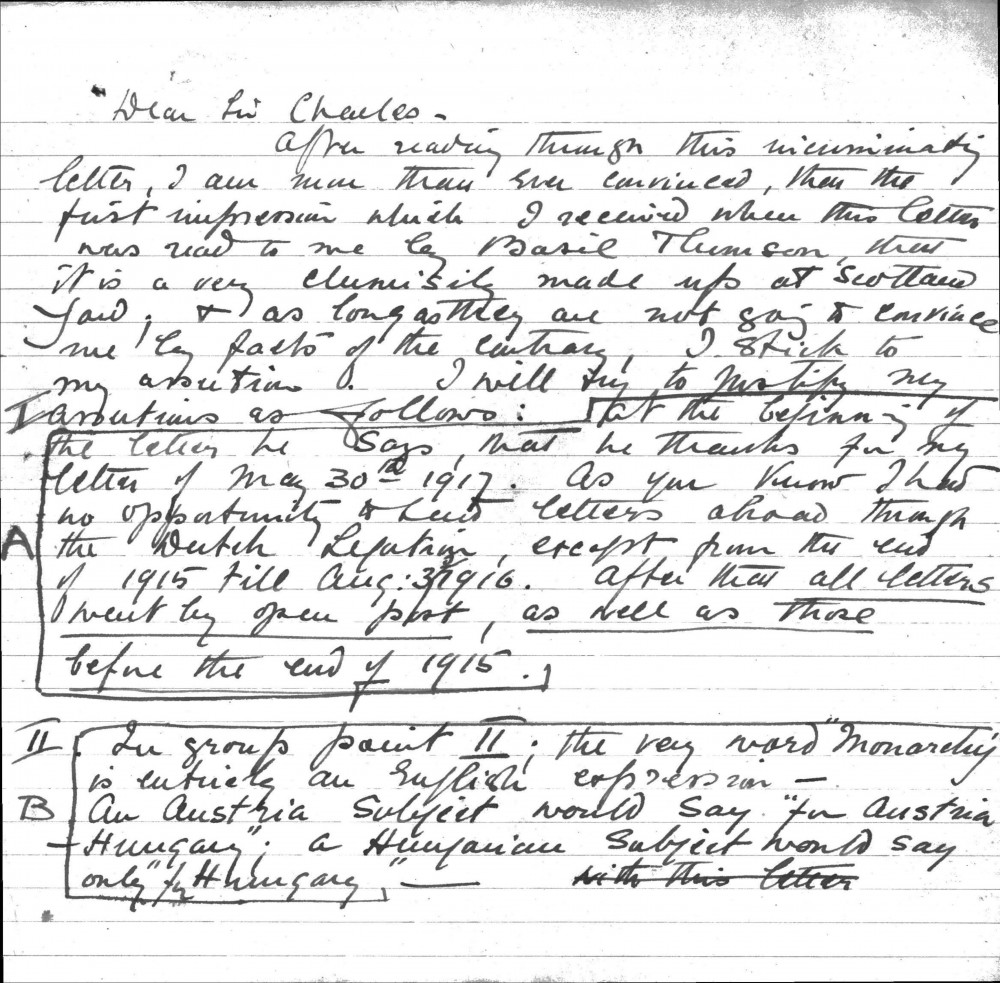 "Dear Sir Charles -
After reading through this incriminating
letter, I am more than ever convinced, that the
first impression which I received when this letter
was read to me by Basil Thomson, that
it is a very clumisily made up at Scotland
Yard; & as long as they are not going to convince
me by facts of the contrary, I stick to
my assertion. I will try to justify my
I assertions as follows: at the beginning of
the letter he says, that he thanks for my
letter of May 30th 1917. As you know I had
no opportunity to send letters abroad through
A the Dutch Legation, except from the end
of 1915 till Aug: 1916. After that all letters
went by open post, as well as those
before the end of 1915.
II. In group point II; the very word "Monarchy"
is entirely an English expression —
B An Austria Subject would say "for Austria
- Hungary"; a Hungarian Subject would say
only "for Hungary," — with this letter